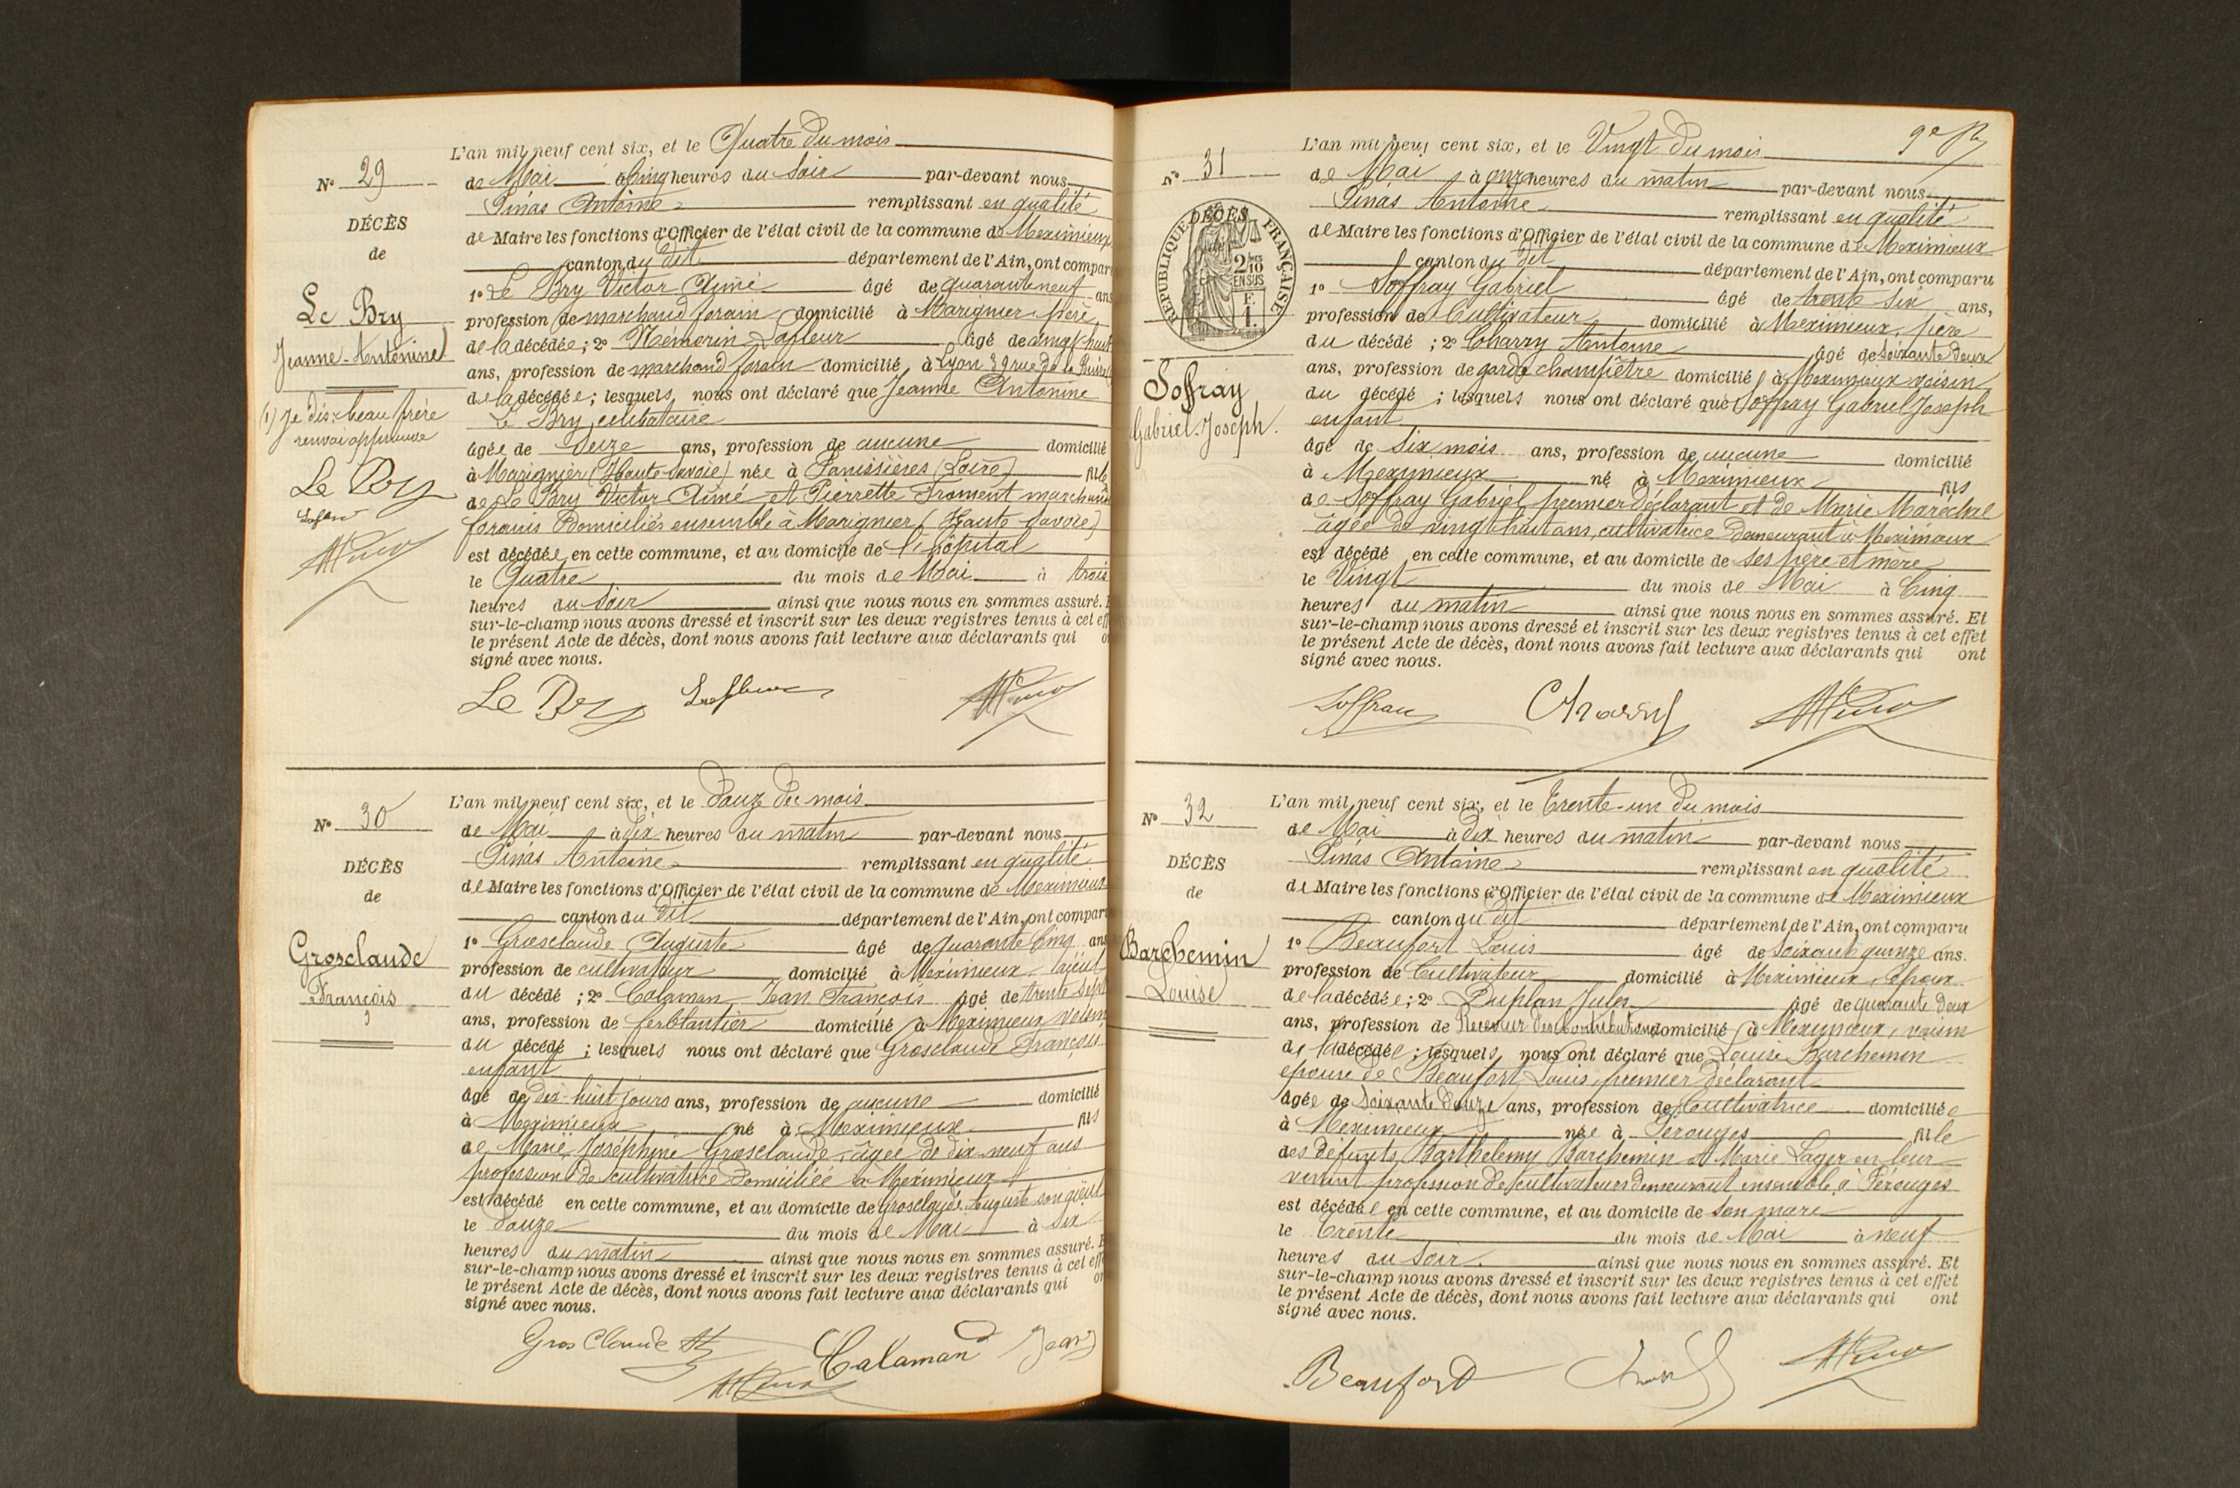 L'an mil neuf cent six, et le Quatre du mois
N° 29
de Mai à Cinq heures du Soir par-devant nous
Pinas Antoine remplissant en qualité
DÉCÈS
de Maire les fonctions d'Officier de l'état civil de la commune de Meximieux
de
canton du dit département de l'Ain, ont compar
Le Bry
Jeanne-Antonine
1° Le Bry Victor Aimé âgé de quarante neuf ans
profession de marchand forain domicilié à Marignier père
de la décédée; 2° Némorin Lafleur âgé de vingt huit
ans, profession de marchand forain domicilié à Lyon 39 rue de la
de la décédée; lesquels nous ont déclaré que Jeanne Antonine
Le Bry, célibataire
(1) Je dis: beau frère
renvoi approuvé
Le Bry
Lafleur
âgée de seize ans, profession de aucune domicilié
à Marignier (Haute-Savoie) née à Panissières (Loire) fille
de Le Bry Victor Aimé et Pierrette Froment marchands
forains Domiciliés ensemble à Marignier (Haute Savoie)
est décédée en cette commune, et au domicile de l'hôpital
le Quatre du mois de Mai à trois
heures du Soir ainsi que nous nous en sommes assuré. E
sur-le-champ nous avons dressé et inscrit sur les deux registres tenus à cet eff
le présent Acte de décès, dont nous avons fait lecture aux déclarants qui o
signé avec nous.
Le Bry Lafleur
L'an mil neuf cent six, et le Douze du mois
N° 30
de Mai à Dix heures du matin par-devant nous
Pinas Antoine remplissant en qualité
DÉCÈS
de Maire les fonctions d'Officier de l'état civil de la commune de Meximieux
de
canton du dit département de l'Ain, ont compar
Grosclaude
François
1° Grosclaude Auguste âgé de quarante Cinq ans
profession de cultivateur domicilié à Meximieux, aïeul
du décédé; 2° Calaman Jean François âgé de trente sept
ans, profession de ferblantier domicilié à Meximieux voisin
du décédé; lesquels nous ont déclaré que Grosclaude François
enfant
âgé de dix-huit jours ans, profession de aucune domicilié
à Meximieux né à Meximieux fils
de Marie Joséphine Grosclaude, âgée de dix-neuf ans
profession de cultivatrice Domiciliée à Meximieux
est décédé en cette commune, et au domicile de Grosclaude Auguste son aïeul
le Douze du mois de Mai à six
heures du matin ainsi que nous nous en sommes assuré. E
sur-le-champ nous avons dressé et inscrit sur les deux registres tenus à cet eff
le présent Acte de décès, dont nous avons fait lecture aux déclarants qui on
signé avec nous.
Gros Claude Calaman Jean
L'an mil neuf cent six, et le Vingt du mois
N° 31
de Mai à onze heures du matin par-devant nous
Pinas Antoine remplissant en qualité
RÉPUBLIQUE FRANÇAISE
DÉCÈS
2/10 EN SUS
F. 1.
de Maire les fonctions d'Officier de l'état civil de la commune de Meximieux
canton du dit département de l'Ain, ont comparu
1° Soffray Gabriel âgé de trente six ans,
profession de Cultivateur domicilié à Meximieux, père
du décédé; 2° Charry Antoine âgé de Soixante Deux
ans, profession de garde champêtre domicilié à Meximieux voisin
Soffray
Gabriel-Joseph.
du décédé; lesquels nous ont déclaré que Soffray Gabriel Joseph
enfant
âgé de Six mois ans, profession de aucune domicilié
à Meximieux né à Meximieux fils
de Soffray Gabriel, premier déclarant et de Marie Maréchal
âgée de vingt huit ans, cultivatrice Demeurant à Meximieux
est décédé en cette commune, et au domicile de ses père et mère
le Vingt du mois de Mai à Cinq
heures du matin ainsi que nous nous en sommes assuré. Et
sur-le-champ nous avons dressé et inscrit sur les deux registres tenus à cet effet
le présent Acte de décès, dont nous avons fait lecture aux déclarants qui ont
signé avec nous.
Soffray Charry
L'an mil neuf cent six, et le Trente-un du mois
N° 32
de Mai à Dix heures du matin par-devant nous
Pinas Antoine remplissant en qualité
DÉCÈS
de Maire les fonctions d'Officier de l'état civil de la commune de Meximieux
de
canton du dit département de l'Ain, ont comparu
Barchemin
Louise
1° Beaufort Louis âgé de Soixante quinze ans.
profession de Cultivateur domicilié à Meximieux, Epoux
de la décédée; 2° Duplan Jules âgé de quarante Deux
ans, profession de Receveur des Contributions domicilié à Meximieux, voisin
de la décédée; lesquels nous ont déclaré que Louise Barchemin
epouse de Beaufort Louis, premier déclarant
âgée de Soixante Douze ans, profession de Cultivatrice domiciliée
à Meximieux née à Pérouges fille
des défunts Barthelemy Barchemin et Marie Lager en leur
vivant profession de cultivateurs demeurant ensemble à Pérouges
est décédée en cette commune, et au domicile de son mari
le Trente du mois de Mai à neuf
heures du Soir. ainsi que nous nous en sommes assuré. Et
sur-le-champ nous avons dressé et inscrit sur les deux registres tenus à cet effet
le présent Acte de décès, dont nous avons fait lecture aux déclarants qui ont
signé avec nous.
Beaufort